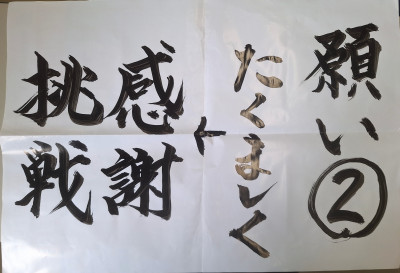 願い②
たくましく
↓
感謝
挑戦